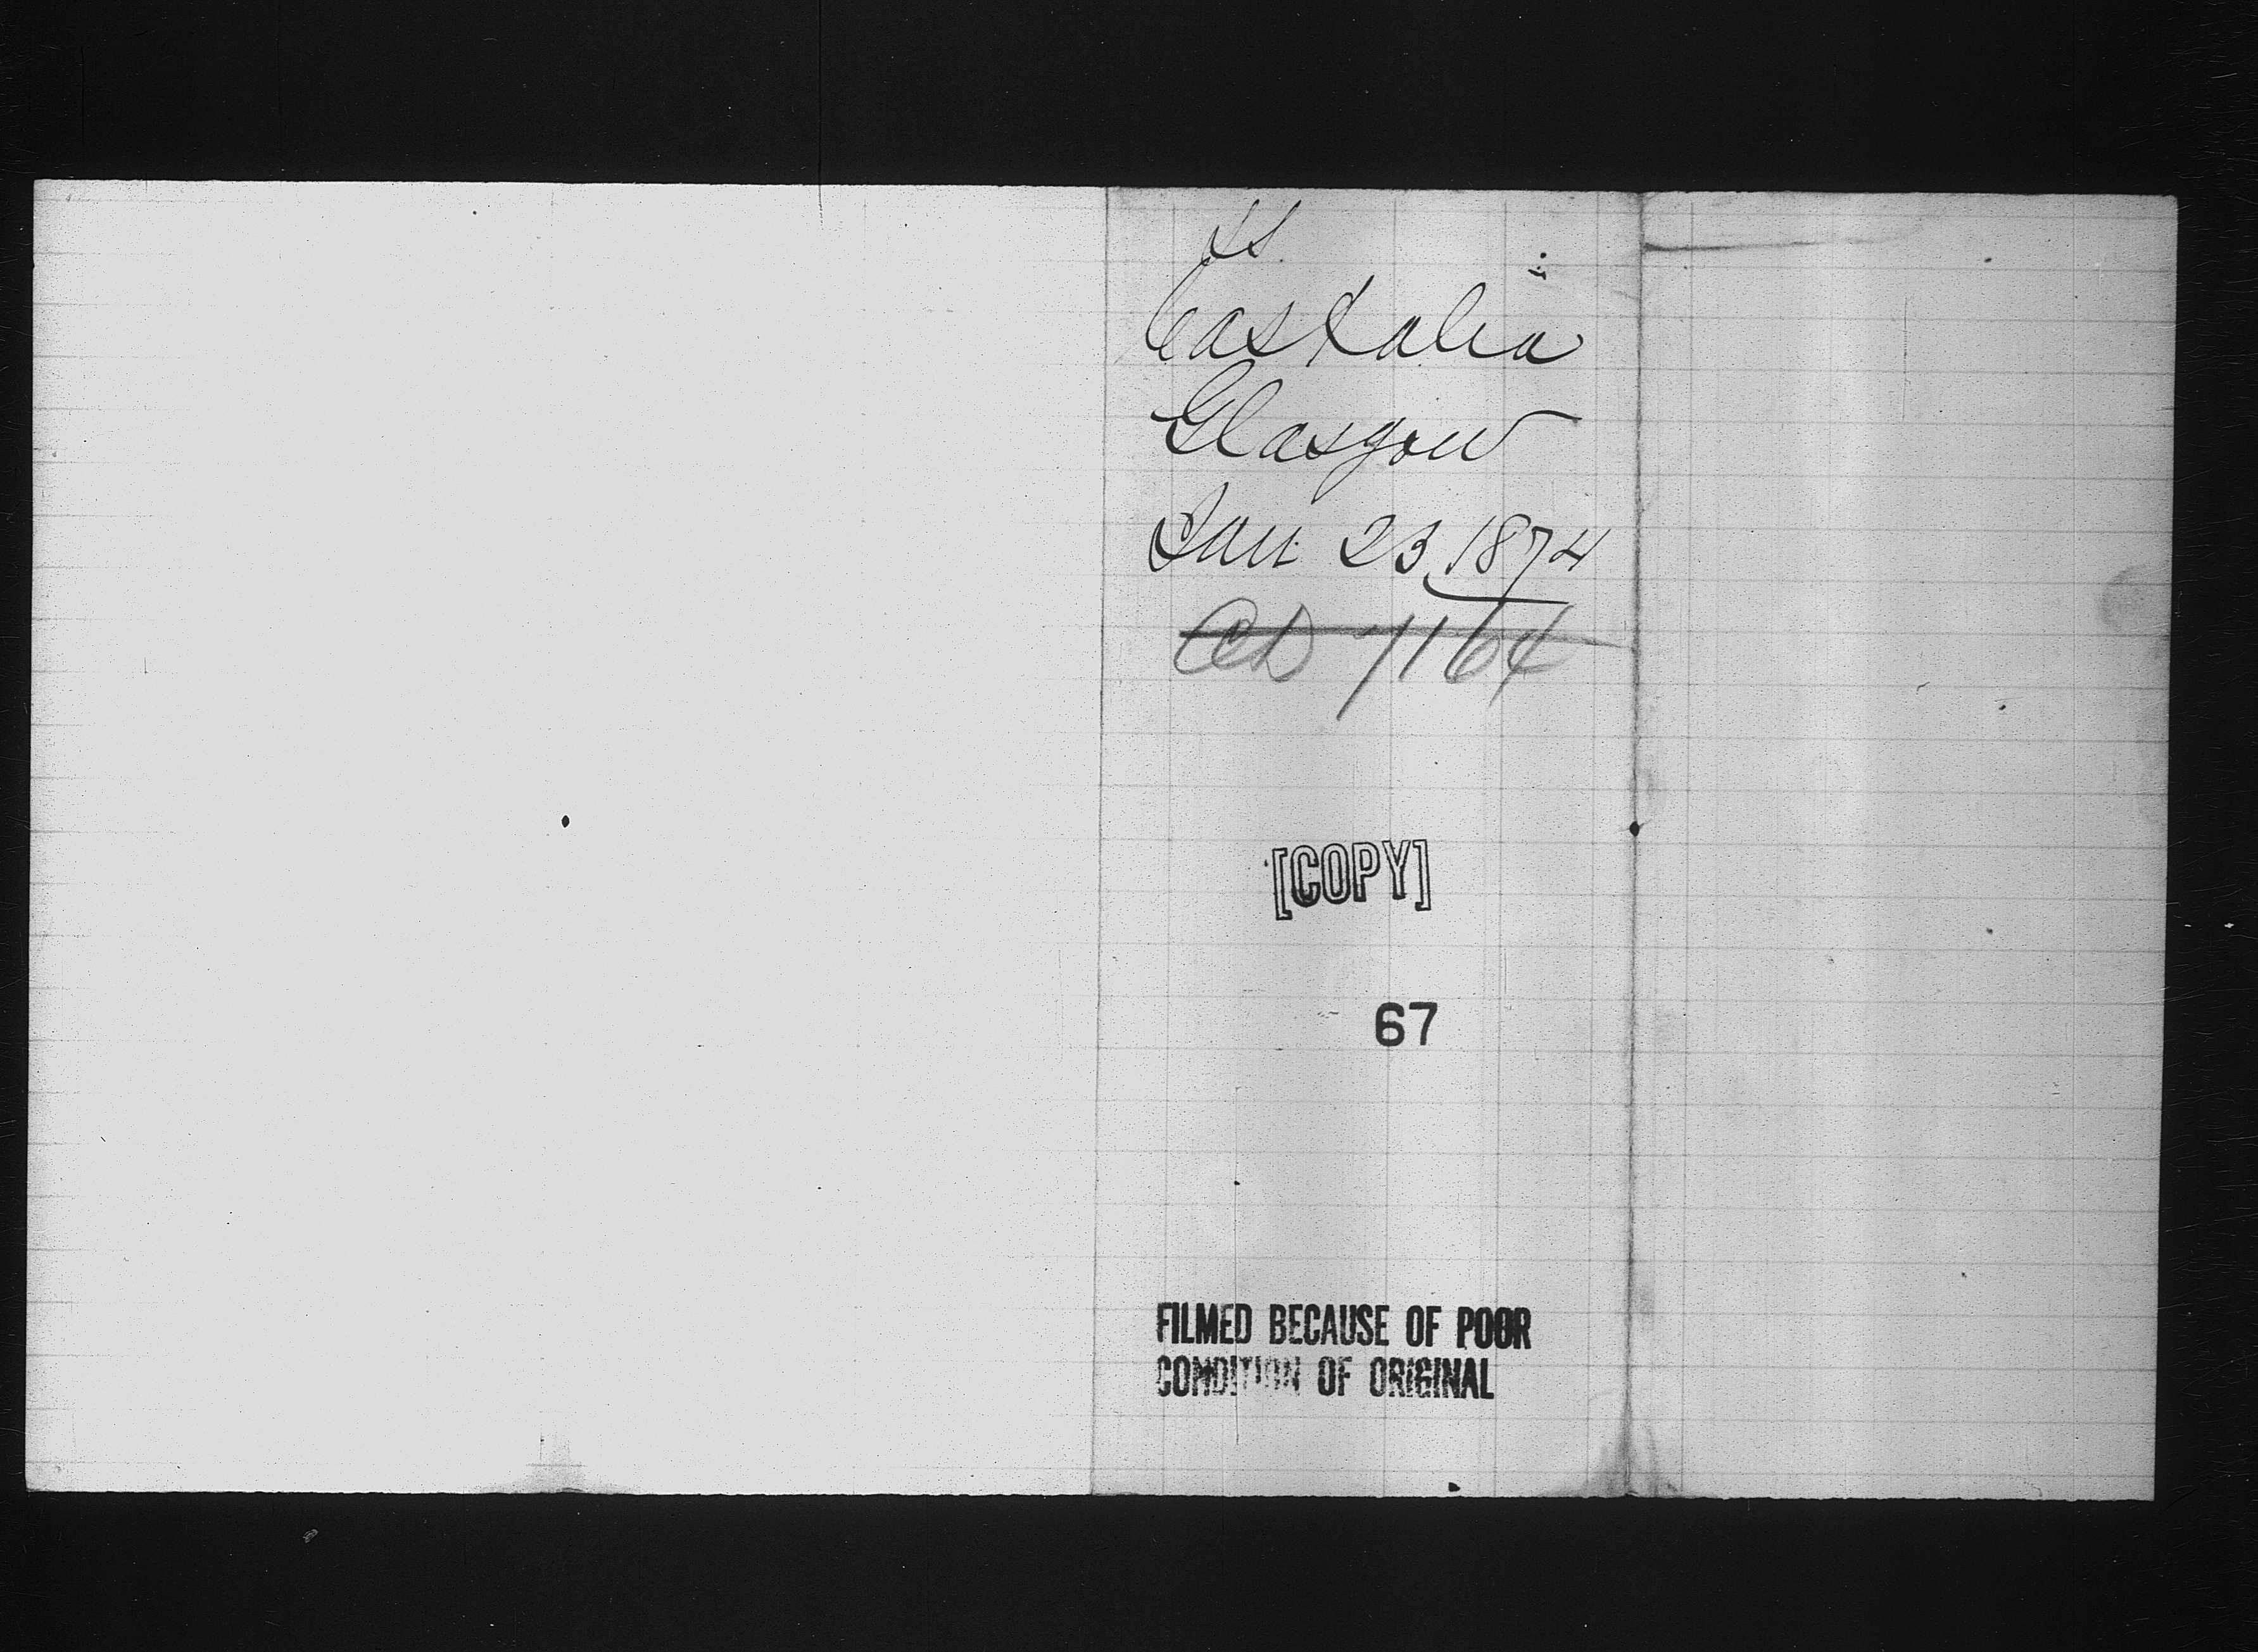 SS.
Castalia
Glasgow
Jan 23, 1874
7164
[COPY]
67
FILMED BECAUSE OF POOR
CONDITION OF ORIGINAL